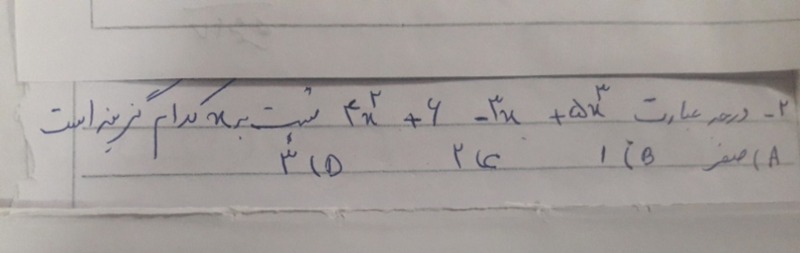 ۲- درجه عبارت ۴x² + ۶ - ۳x + ۵x³ نسبت به x کدام گزینه است
A) صفر B) ۱ C) ۲ D) ۳